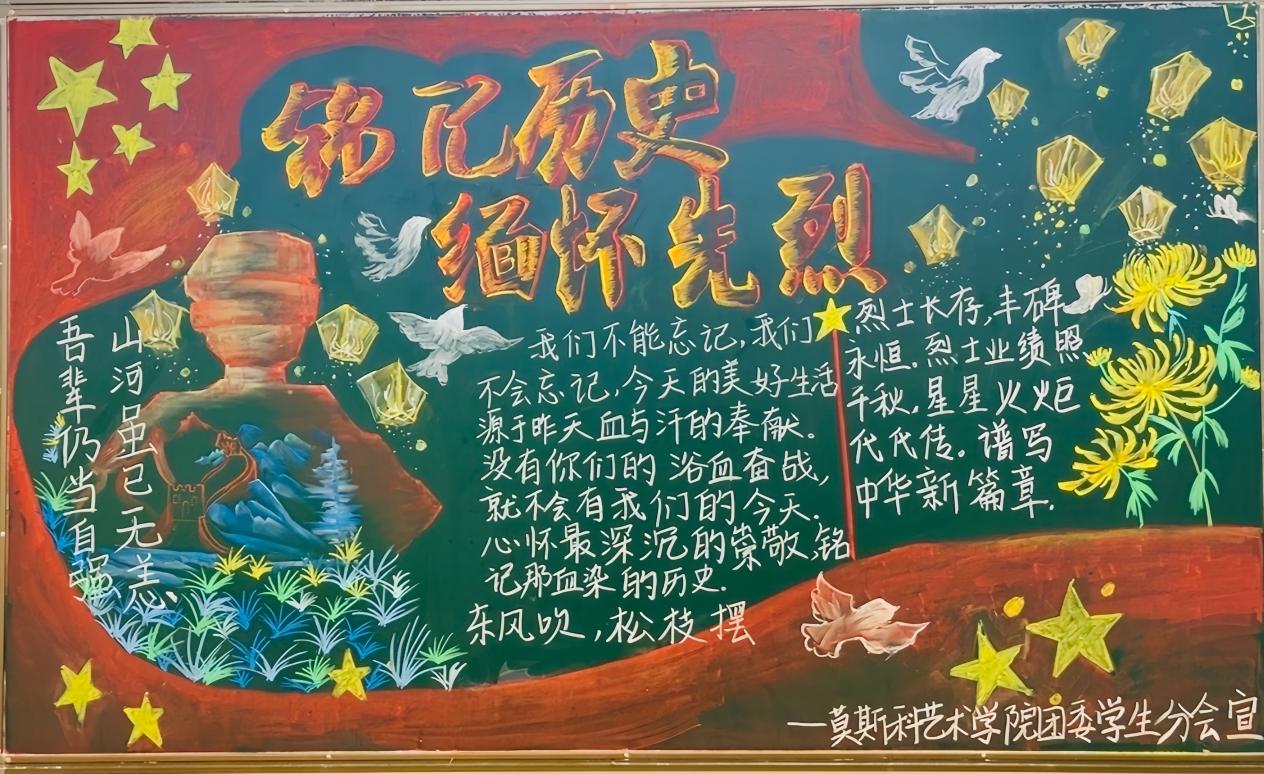 铭记历史
缅怀先烈
山河虽已无恙
吾辈仍当自强
我们不能忘记,我们
不会忘记,今天的美好生活
源于昨天血与汗的奉献。
没有你们的浴血奋战,
就不会有我们的今天.
心怀最深沉的崇敬,铭
记那血染的历史.
东风吹,松枝摆
烈士长存,丰碑
永恒.烈士业绩照
千秋,星星火炬
代代传。谱写
中华新篇章.
—莫斯科艺术学院团委学生分会宣